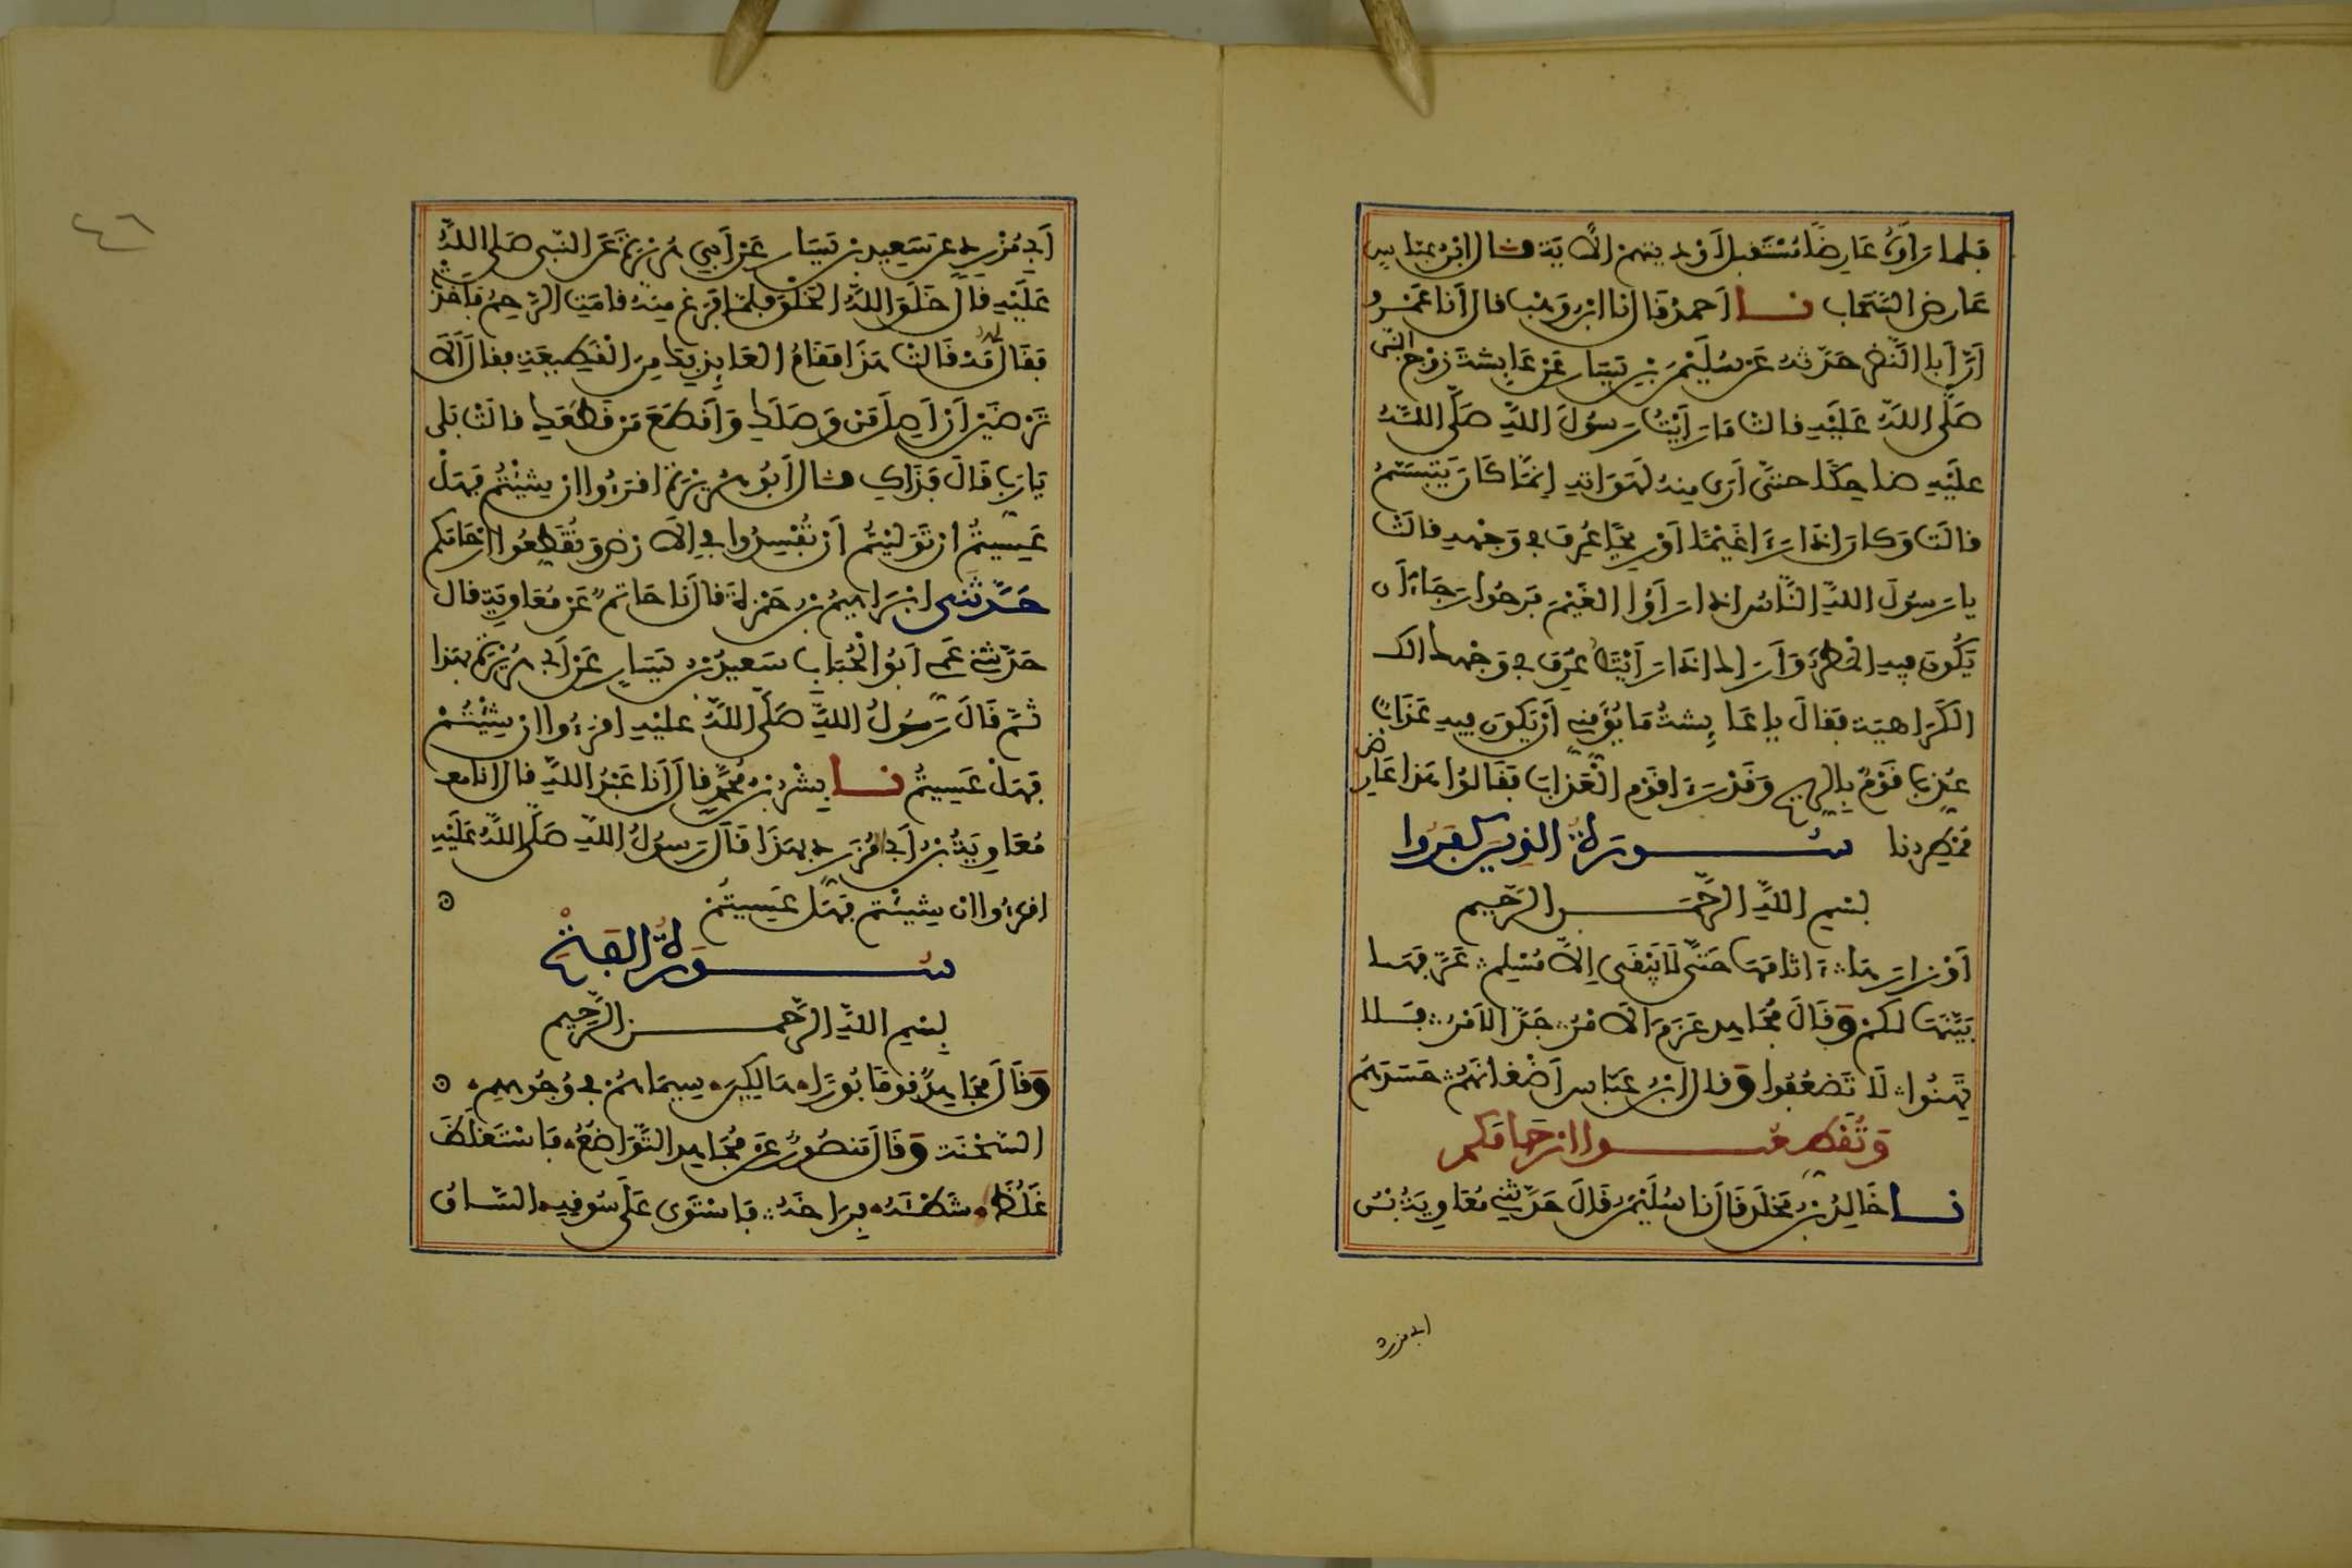 فلما رأوه عَارِضًا مُسْتَقبِلَ أَوْديتهم الآيَةَ قال ابن عبّاسٍ
عَارض السَّحَاب نا أحمدُ قال نا ابن وَهْب قال أنا عَمْرو
أنّ أبا النَّضر حَدّثه عَن سُلَيْمٰنَ بْنِ يَسَار عَن عَايِشَةَ زَوْج النَّبي
صَلَّى اللهُ عَلَيْهِ قالت مَا رَأَيْتُ رَسُولَ اللهِ صَلَّى اللهُ
علَيْهِ ضاحِكًا حتَّى أرَى مِنهُ لَهَوَاتِهِ إنمَّا كَانَ يَتَبَسَّمُ
قالَت وَكان إذا رَءَا غَيْمًا أوْ رِيحًا عُرِفَ في وَجْهِهِ قالَتْ
يا رَسُولَ اللهِ النَّاسُ إذا رَأَوُا الغَيْمَ فَرِحُوا رَجَاءَ أن
يَكُونَ فِيهِ المطَرُ وَأَرَاك إذا رَأَيْتَهُ عُرِفَ في وَجْهِك
الكَرَاهِيَة فقالَ يا عَايِشةُ مَا يُؤمِنِّي أَنْ يَكونَ فِيهِ عَذَابٌ
عُذِّبَ قَوْمٌ بِالرّيحِ وَقَدْ رَءَا قَوْم الْعَذَابَ فَقَالُوا هذا عَارِض
مُمْطِرنا سُورَةُ الذين كفَرُوا
بسْمِ اللهِ الرَّحْمَنِ الرَّحِيم
أوْزارَهَا ∴ ءاثامَهَا حَتَّى لَا يَبْقَى إلَّا مُسْلِم ∴ عَرَّفهَا
بَيَّنَهَا لكم وَقَالَ مُجَاهِد عَزَمَ الأمْرُ ∴ جَدَّ الأمْرُ ∴ فَلا
تَهِنُوا ∴ لَا تَضعُفُوا وَقال ابْنُ عَبّاس أَضْغانَهُمْ ∴ حَسَدَهُمْ
وَتُقَطِّعُوا أرْحَامَكم
نا خَالِدُ بْنُ مَخْلَد قَال نا سُلَيْمٰنُ قَالَ حَدّثني مُعَاوِيَةُ بْنُ
ابي مزرد
٤٦
أبي مُزَرِّدٍ عن سَعِيدِ بن يَسَار عَنْ أبي هُرَيْرَةَ عَن النَّبي صَلى اللهُ
عَلَيْهِ قال خَلَقَ اللهُ الخَلْقَ فلمّا فَرَغَ مِنهُ قامَتِ الرَّحِمُ فأخَذَتْ
فقال لها مَهْ قَالَتْ هَذا مَقَامُ العَايِذِ بِكَ مِنَ الْقَطِيعَةِ فقال ألَا
تَرْضَيْنَ أنْ أَصِلَ مَن وَصَلَكِ وَأَقطَعَ مَن قَطَعَكِ قالتْ بَلى
يَا رَبِّ قَالَ فَذَاكِ قال أبُو هُرَيْرَةَ اقرَءُوا إن شِيْتُمْ فهَلْ
عَسِيتُم إن تَوَلّيْتُم أنْ تُفْسِدُوا في الأرْضِ وَتُقَطِّعُوا أرْحَامَكم
حَدَّثَنِي إبْرَاهِيمُ بْنُ حَمْزَةَ قال نا حَاتِمٌ عَن مُعَاوِيَة قال
حَدّثني عَمِّي أبُو الْحُبَاب سَعِيدُ بْنُ يَسَارٍ عَن أبي هُرَيْرَة بهذا
ثمَّ قَالَ رَسُولُ اللهِ صَلَّى اللهُ عليْهِ اقرَءُوا إن شِيْتُمْ
فَهَلْ عَسِيتُم نا بِشْرُ بْنُ مُحَمّدٍ قال أنا عَبْدُ اللهِ قال أنا
مُعَاوِيَةُ بْنُ أبي مُزَرِّدٍ بهذا قَال رَسُولُ اللهِ صَلَّى اللهُ عَلَيْهِ
اقرءُوا إن شِيتُم فهَل عَسِيتُمْ
سُورَةُ الفَتْح
بِسْمِ اللهِ الرَّحْمَنِ الرَّحِيم
وَقَالَ مُجَاهِدٌ قوْمًا بُورًا هَالِكِينَ سِيمَاهُمْ في وُجُوهِهِمْ
السَّحْنَة وَقَالَ مَنصُورٌ عَن مُجَاهِد التَّوَاضُعُ فاسْتَغلَظَ
غَلُظَ شَطْئَهُ فِرَاخَهُ ∴ فاسْتَوَى عَلَى سُوقِهِ السَّاقُ